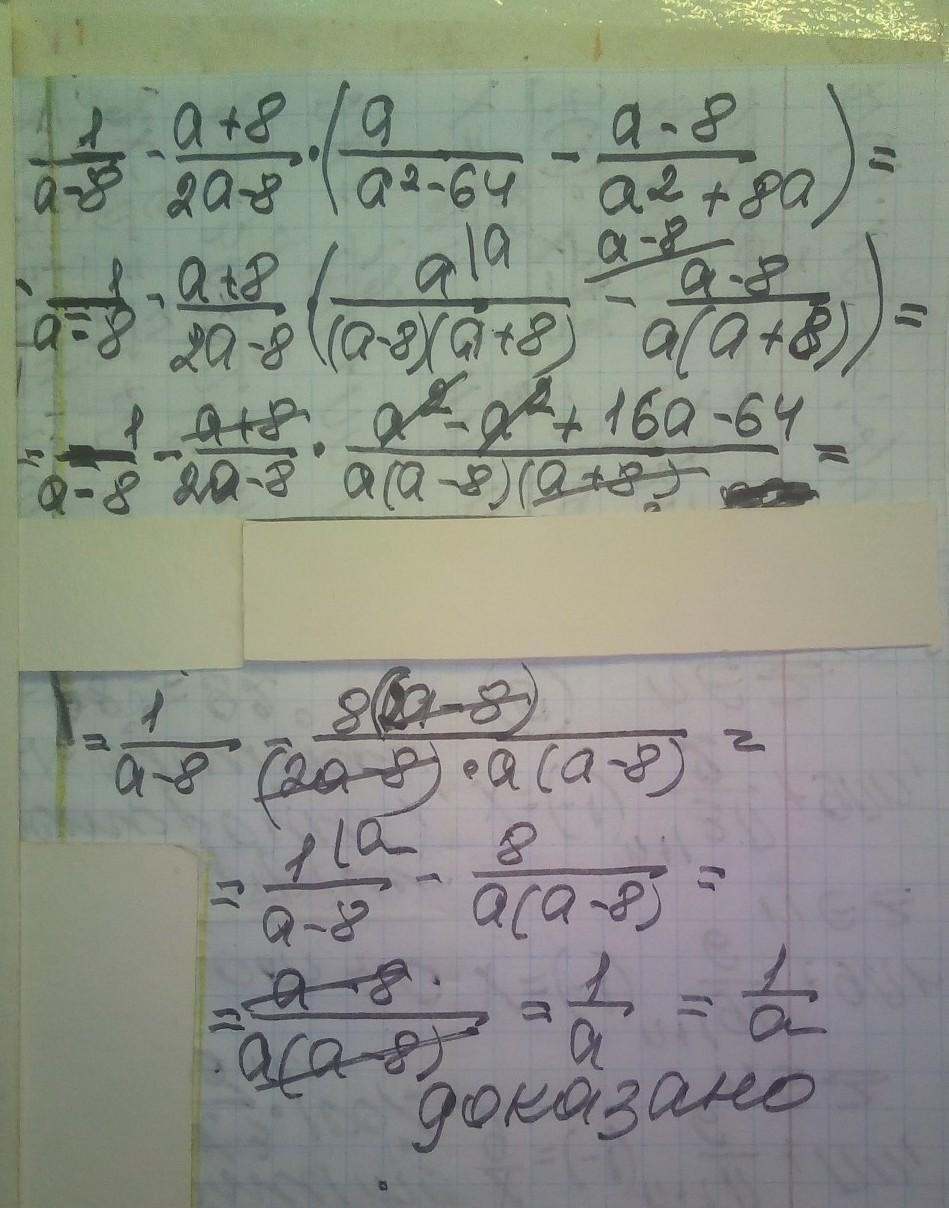 1/(a-8) - (a+8)/(2a-8) · (a/(a²-64) - (a-8)/(a²+8a)) =
= 1/(a-8) - (a+8)/(2a-8) (a|a/((a-8)(a+8)) - a-8| (a-8)/(a(a+8))) =
= 1/(a-8) - (a+8)/(2a-8) · (a²-a²+16a-64)/(a(a-8)(a+8)) =
= 1/(a-8) - 8(2a-8)/((2a-8)·a(a-8)) =
= 1|a/(a-8) - 8/(a(a-8)) =
= (a-8)/(a(a-8)) = 1/a = 1/a
доказано